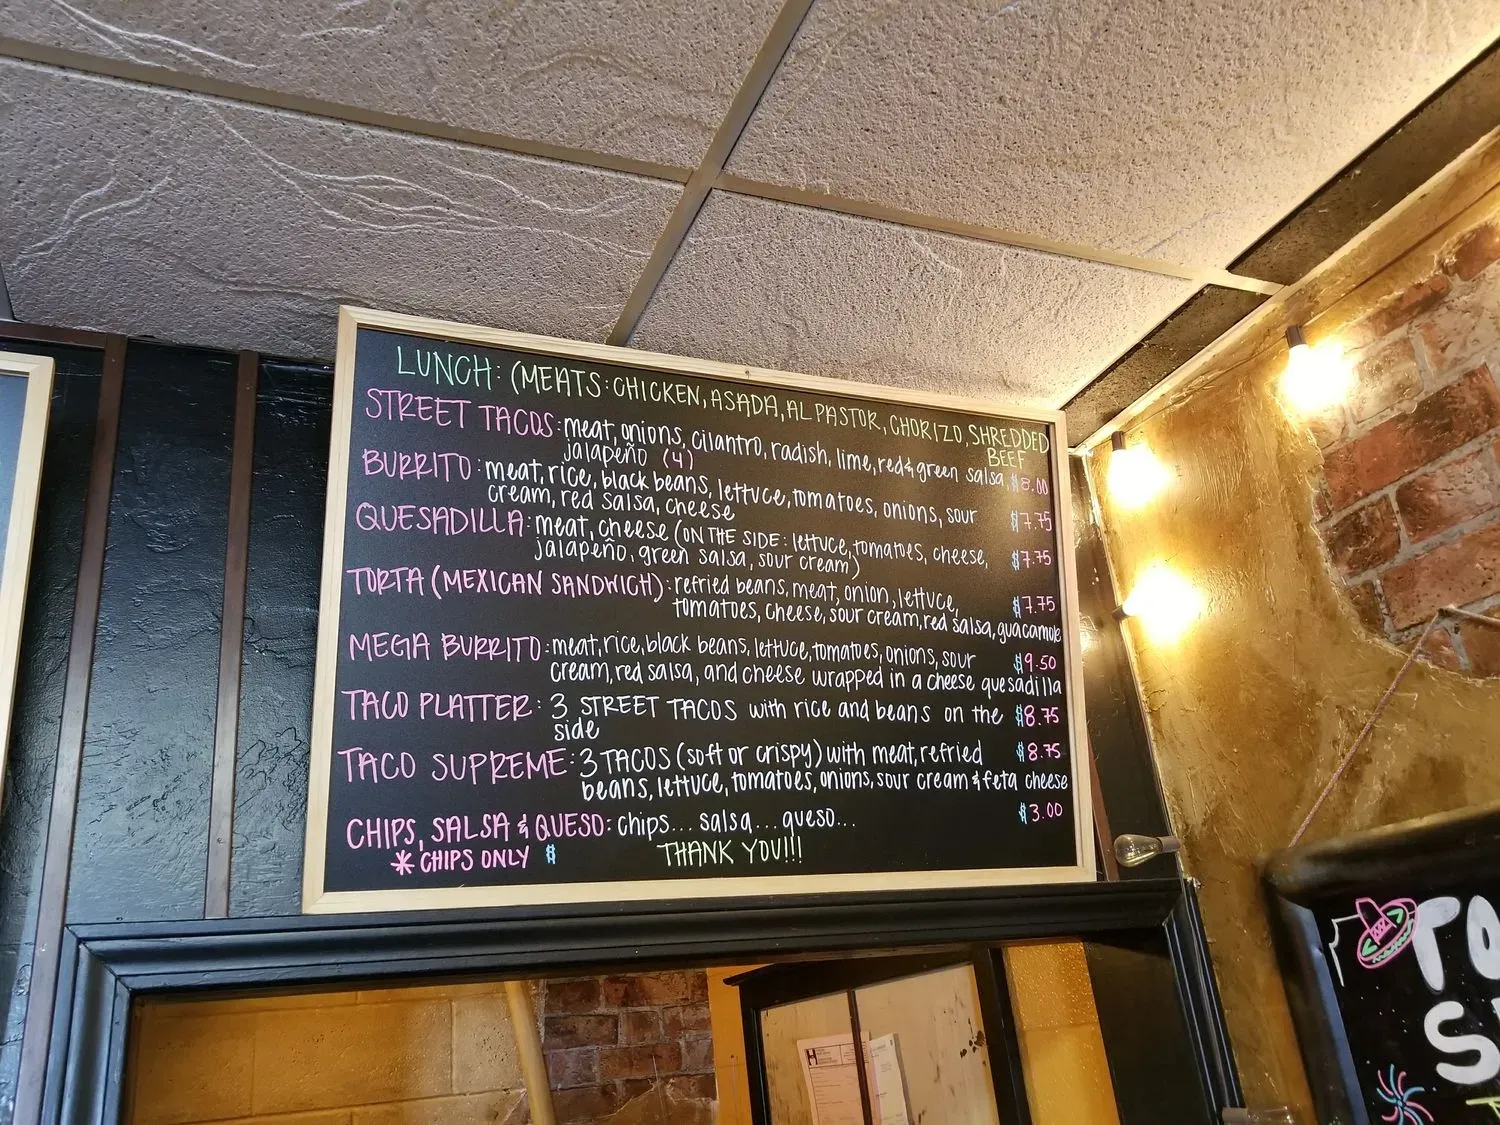 LUNCH: (MEATS: CHICKEN, ASADA, AL PASTOR, CHORIZO, SHREDDED
BEEF
STREET TACOS: meat, onions, cilantro, radish, lime, red & green salsa, $8.00
jalapeño (4)
BURRITO: meat, rice, black beans, lettuce, tomatoes, onions, sour $7.75
cream, red salsa, cheese
QUESADILLA: meat, cheese (ON THE SIDE: lettuce, tomatoes, cheese, $7.75
jalapeño, green salsa, sour cream)
TORTA (MEXICAN SANDWICH): refried beans, meat, onion, lettuce, $7.75
tomatoes, cheese, sour cream, red salsa, guacamole
MEGA BURRITO: meat, rice, black beans, lettuce, tomatoes, onions, sour $9.50
cream, red salsa, and cheese wrapped in a cheese quesadilla
TACO PLATTER: 3 STREET TACOS with rice and beans on the $8.75
side
TACO SUPREME: 3 TACOS (soft or crispy) with meat, refried $8.75
beans, lettuce, tomatoes, onions, sour cream & feta cheese
CHIPS, SALSA & QUESO: chips... salsa... queso... $3.00
* CHIPS ONLY $
THANK YOU!!!